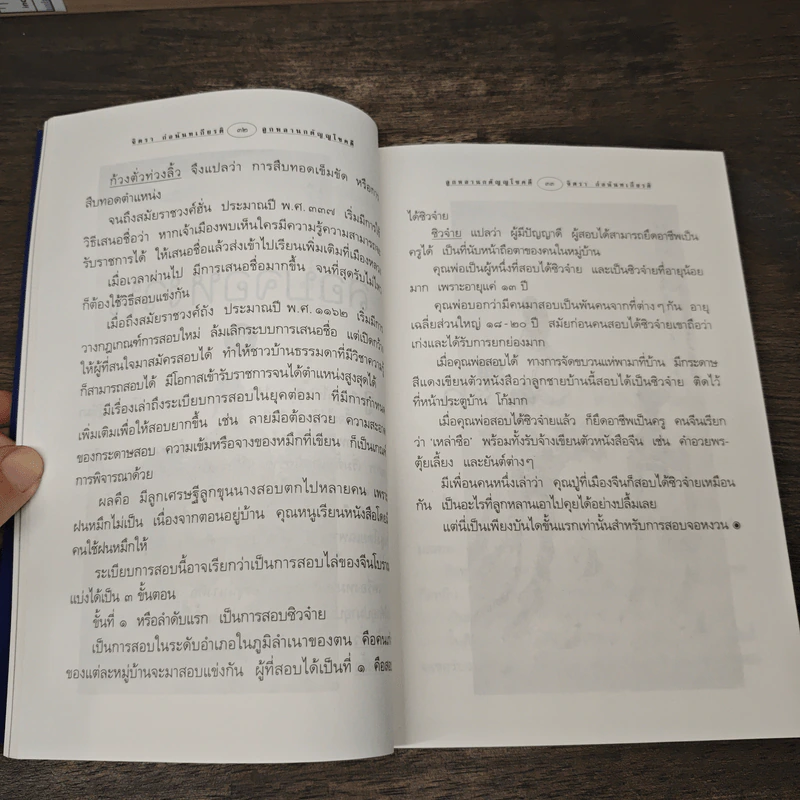 จิตรา ก่อนันทเกียรติ ๓๒ ลูกหลานกตัญญูโชคดี
ก้วงตั่วท่วงลิ้ว จึงแปลว่า การสืบทอดเข็มขัด หรือการ
สืบทอดตำแหน่ง
จนถึงสมัยราชวงศ์ฮั่น ประมาณปี พ.ศ. ๓๓๗ เริ่มมีการใช้
วิธีเสนอชื่อว่า หากเจ้าเมืองพบเห็นใครมีความรู้ความสามารถพอ
รับราชการได้ ให้เสนอชื่อแล้วส่งเข้าไปเรียนเพิ่มเติมที่เมืองหลวง
เมื่อเวลาผ่านไป มีการเสนอชื่อมากขึ้น จนที่สุดรับไม่ไหว
ก็ต้องใช้วิธีสอบแข่งกัน
เมื่อถึงสมัยราชวงศ์ถัง ประมาณปี พ.ศ. ๑๑๖๒ เริ่มมีการ
วางกฎเกณฑ์การสอบใหม่ ล้มเลิกระบบการเสนอชื่อ แต่เปิดกว้าง
ให้ผู้ที่สนใจมาสมัครสอบได้ ทำให้ชาวบ้านธรรมดาที่มีวิชาความรู้
ก็สามารถสอบได้ มีโอกาสเข้ารับราชการจนได้ตำแหน่งสูงสุดได้
มีเรื่องเล่าถึงระเบียบการสอบในยุคต่อมา ที่มีการกำหนด
เพิ่มเติมเพื่อให้สอบยากขึ้น เช่น ลายมือต้องสวย ความสะอาด
ของกระดาษสอบ ความเข้มหรือจางของหมึกที่เขียน ก็เป็นเกณฑ์
การพิจารณาด้วย
ผลคือ มีลูกเศรษฐีลูกขุนนางสอบตกไปหลายคน เพราะ
ฝนหมึกไม่เป็น เนื่องจากตอนอยู่บ้าน คุณหนูเรียนหนังสือโดยมี
คนใช้ฝนหมึกให้
ระเบียบการสอบนี้อาจเรียกว่าเป็นการสอบไล่ของจีนโบราณ
แบ่งได้เป็น ๓ ขั้นตอน
ขั้นที่ ๑ หรือลำดับแรก เป็นการสอบซิวจ๋าย
เป็นการสอบในระดับอำเภอในภูมิลำเนาของตน คือคน
ของแต่ละหมู่บ้านจะมาสอบแข่งกัน ผู้ที่สอบได้เป็นที่ ๑ คือสอบ
ลูกหลานกตัญญูโชคดี ๓๓ จิตรา ก่อนันทเกียรติ
ได้ซิวจ๋าย
ซิวจ๋าย แปลว่า ผู้มีปัญญาดี ผู้สอบได้สามารถยึดอาชีพเป็น
ครูได้ เป็นที่นับหน้าถือตาของคนในหมู่บ้าน
คุณพ่อเป็นผู้หนึ่งที่สอบได้ซิวจ๋าย และเป็นซิวจ๋ายที่อายุน้อย
มาก เพราะอายุแค่ ๑๓ ปี
คุณพ่อบอกว่ามีคนมาสอบเป็นพันคนจากที่ต่างๆ กัน อายุ
เฉลี่ยส่วนใหญ่ ๑๘-๒๐ ปี สมัยก่อนคนสอบได้ซิวจ๋ายเขาถือว่า
เก่งและได้รับการยกย่องมาก
เมื่อคุณพ่อสอบได้ ทางการจัดขบวนแห่พามาที่บ้าน มีกระดาษ
สีแดงเขียนตัวหนังสือว่าลูกชายบ้านนี้สอบได้เป็นซิวจ๋าย ติดไว้
ที่หน้าประตูบ้าน โก้มาก
เมื่อคุณพ่อสอบได้ซิวจ๋ายแล้ว ก็ยึดอาชีพเป็นครู คนจีนเรียก
ว่า 'เหล่าซือ' พร้อมทั้งรับจ้างเขียนตัวหนังสือจีน เช่น คำอวยพร-
ตุ้ยเลี้ยง และยันต์ต่างๆ
มีเพื่อนคนหนึ่งเล่าว่า คุณปู่ที่เมืองจีนก็สอบได้ซิวจ๋ายเหมือน
กัน เป็นอะไรที่ลูกหลานเอาไปคุยได้อย่างปลื้มเลย
แต่นี่เป็นเพียงบันไดขั้นแรกเท่านั้นสำหรับการสอบจอหงวน ◉